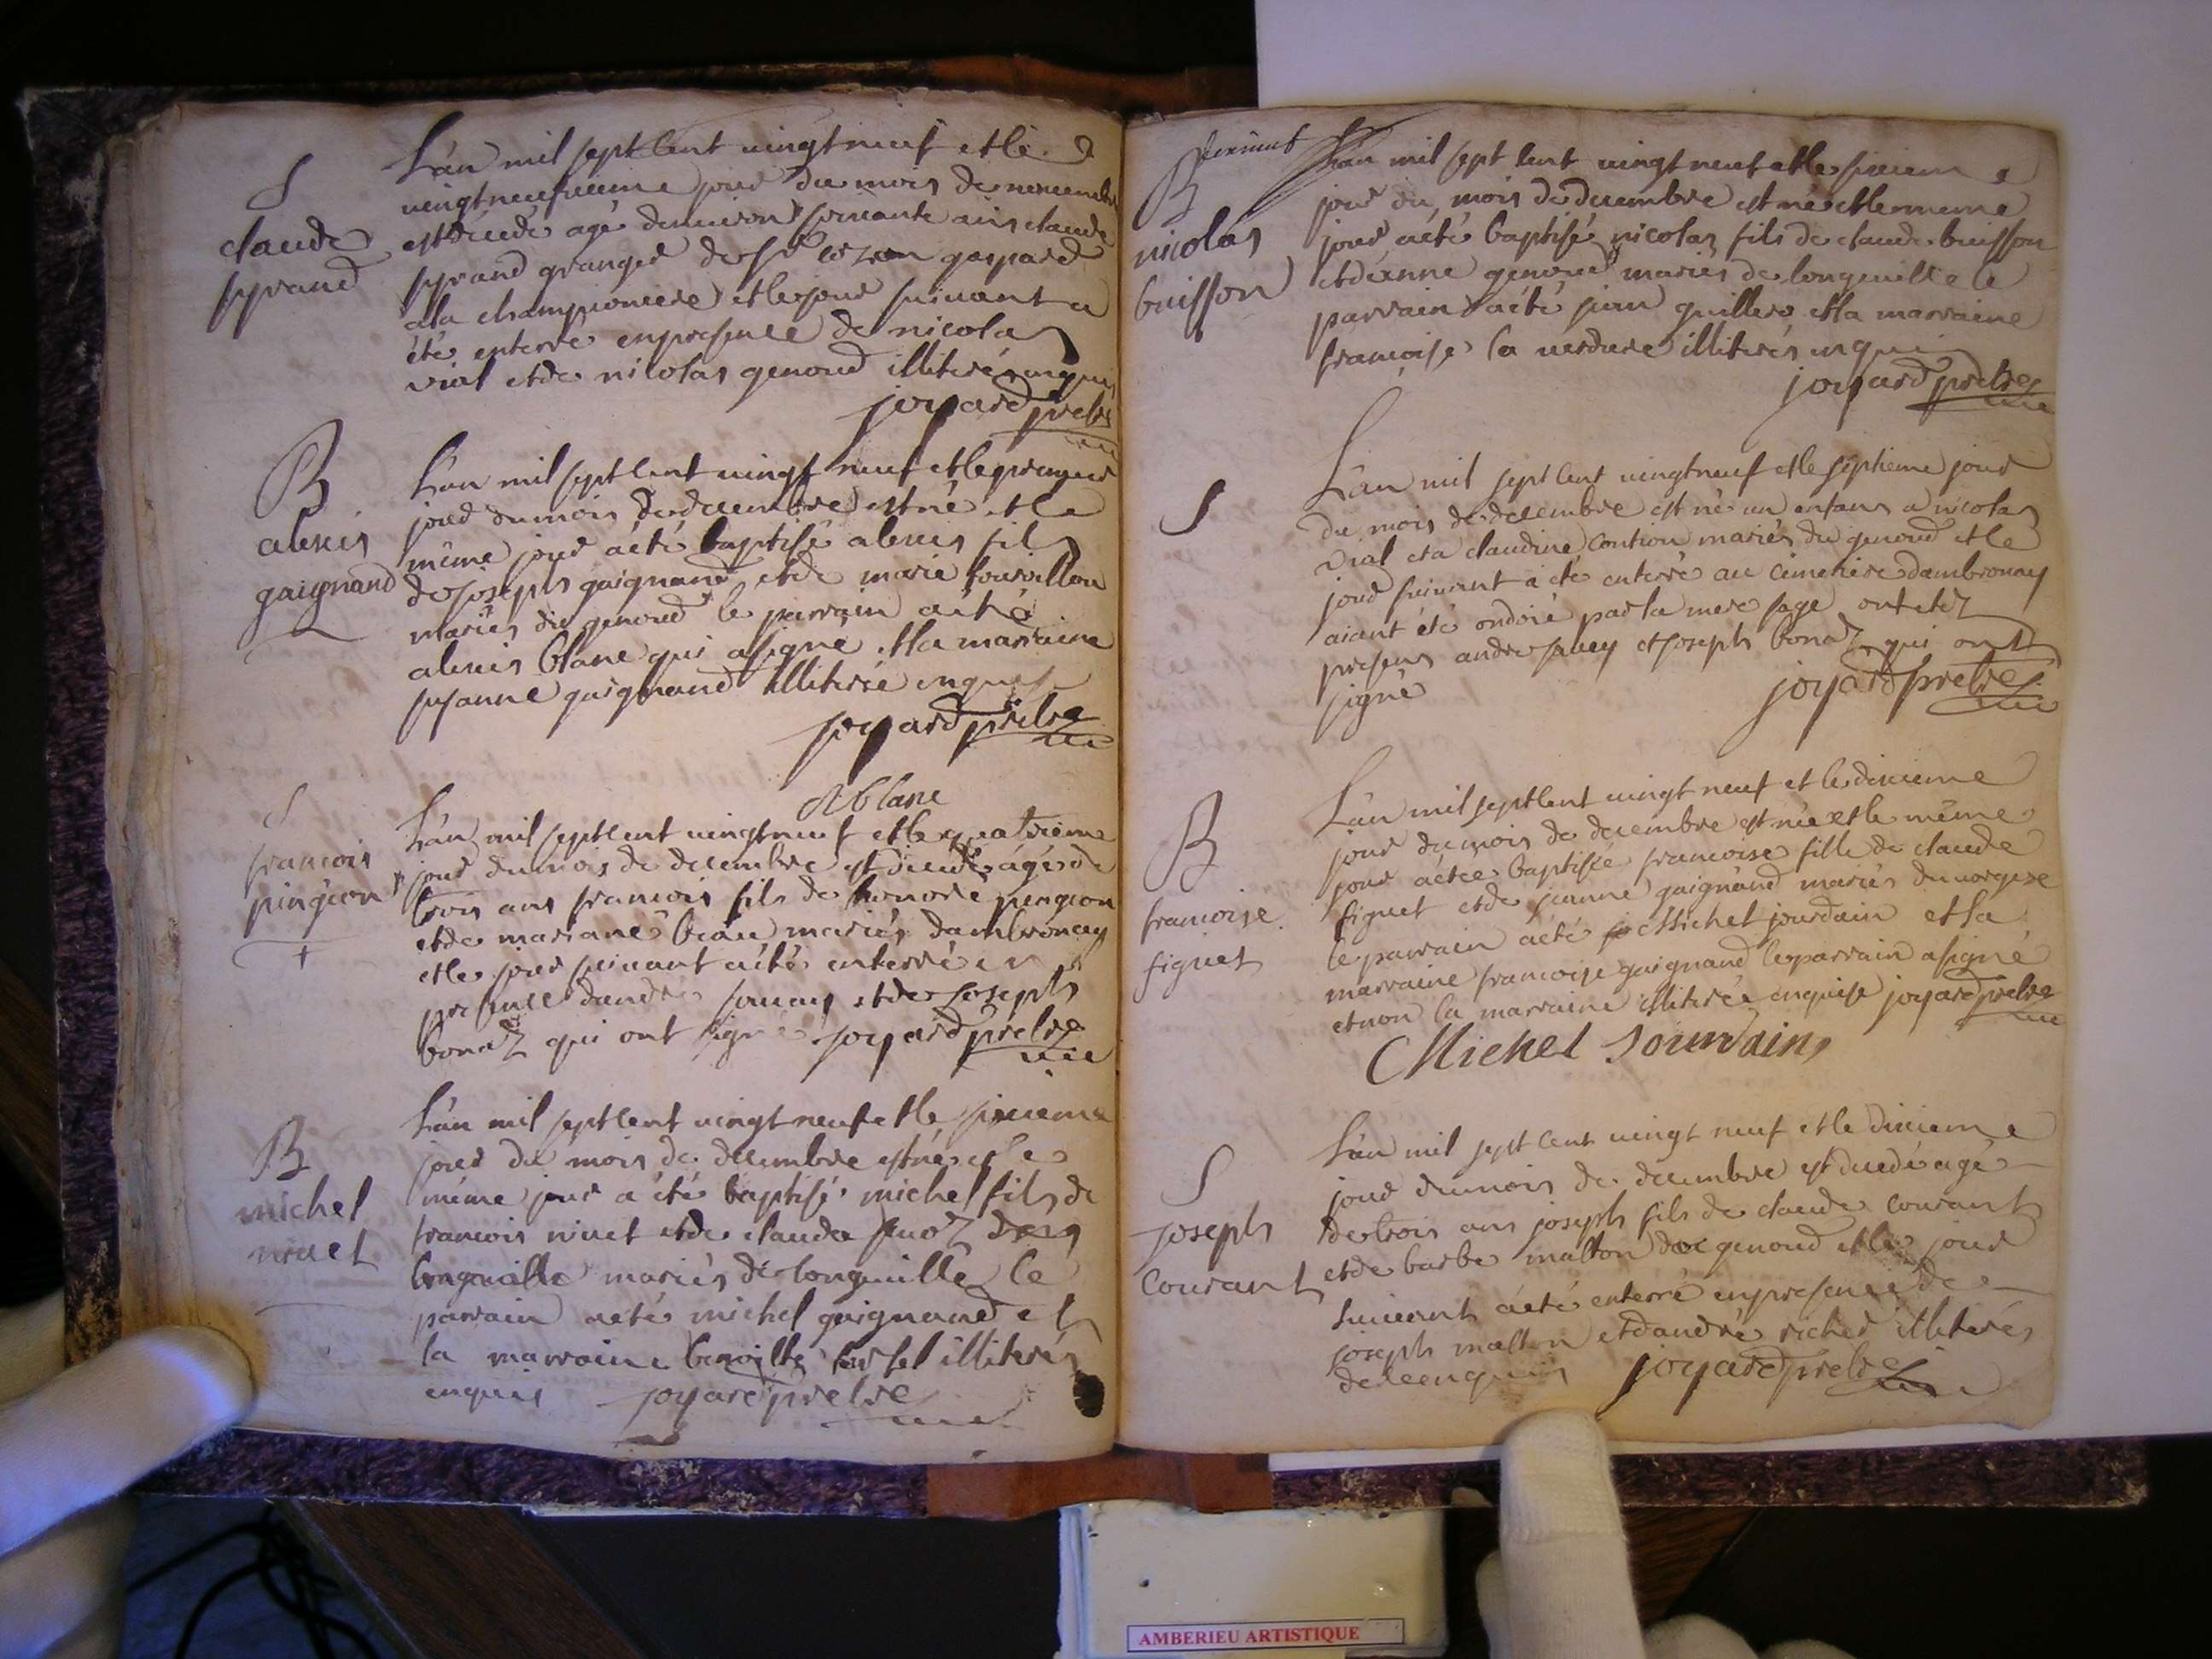 S
claude
syrand
L'an mil sept cent vingt neuf et le
vingt neufvieme jour du mois de novembre
est decedé agé denviron soixante ans claude
syrand granger de gaspard
a la championiere et le jour suivant a
été enterré en presence de nicolas
vial et de nicolas genoud illiterés enquis
joyard prebre
B
alexis
gaignand
L'an mil sept cent vingt neuf et le premier
jour du mois de decembre est né et le
même jour a été baptisé alexis fils
de joseph gaignand et de marie fourvillon
mariés du genoud le parrain a été
alexis blanc qui a signé et la marraine
susanne gaignand illiterée enquise
joyard prebre
A blanc
S
francois
pingeon
L'an mil sept cent vingt neuf et le quatrieme
jour du mois de decembre est decedé agé de
trois ans francois fils de honoré pingeon
et de mariane beau mariés dambronay
et le jour suivant a été enterré en
presence dandré sauey et de Joseph
bonaz qui ont signé joyard prebre
B
michel
nivet
L'an mil sept cent vingt neuf et le sixieme
jour du mois de decembre est né et le
même jour a été baptisé michel fils de
francois nivet et de claude juoz
longeville mariés de longeville le
parrain a été michel gaignand et
la marraine benoitte illiterés
enquis joyard prebre
B
nicolas
buisson
L'an mil sept cent vingt neuf et le sixieme
jour du mois de decembre est né et le meme
jour a été baptisé nicolas fils de claude buisson
et d'anne genoud mariés de longeville le
parrain a été jean guillere et la marraine
francoise la verdure illiterés enquis
joyard prebre
S
L'an mil sept cent vingt neuf et le septieme jour
du mois de decembre est né un enfans a nicolas
vial et a claudine contion mariés du genoud et le
jour suivant a été enterré au cimetiere dambronay
aiant été ondoié par la mere sage ont etez
presens andre sauey et joseph bonaz qui ont
signé
joyard prebre
B
francoise
figuet
L'an mil sept cent vingt neuf et le dixieme
jour du mois de decembre est née et le même
jour a étée baptisée francoise fille de claude
figuet et de jeanne gaignand mariés du vorgese
le parrain a été Michel jourdain et la
marraine francoise gaignand le parrain a signé
et non la marraine illiterée enquise joyard prebre
Michel Jourdain
S
joseph
courant
L'an mil sept cent vingt neuf et le dixieme
jour du mois de decembre est decedé agé
de trois ans joseph fils de claude courant
et de barbe matton du genoud et le jour
suivant a été enterré en presence de
joseph matton et dandré richer illiterés
de ce enquis joyard prebre
AMBERIEU ARTISTIQUE